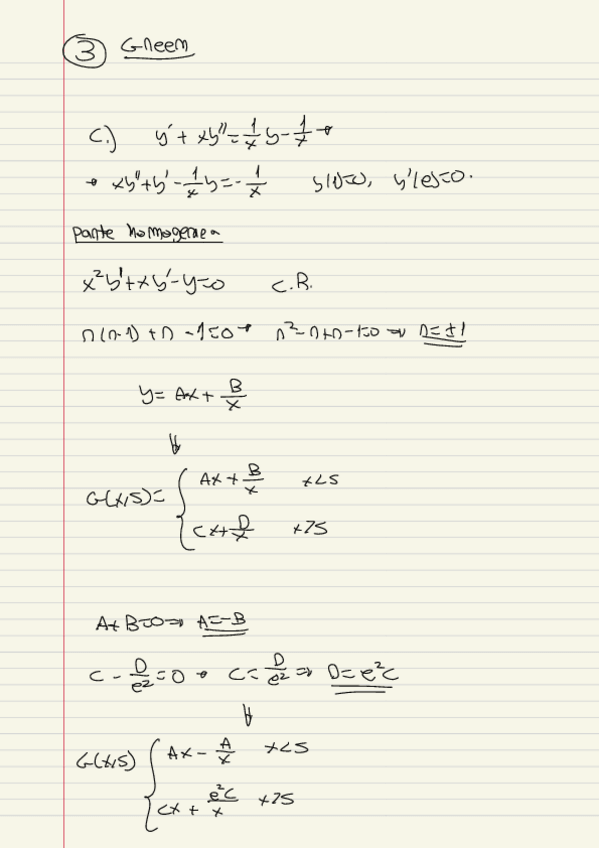 3 Green
c.) y' + xy'' = 1/x y - 1/x →
→ xy'' + y' - 1/x y = - 1/x y(1)=0, y'(e)=0.
Parte homogenea
x²y'' + xy' - y = 0 C.R.
n(n-1) + n - 1 = 0 → n² - n + n - 1 = 0 ⇒ n = ±1
y = Ax + B/x
⇓
G(x,s) = { Ax + B/x x<s
Cx + D/x x>s
A + B = 0 ⇒ A = -B
C - D/e² = 0 → C = D/e² ⇒ D = e²C
⇓
G(x,s) { Ax - A/x x<s
Cx + e²C/x x>s